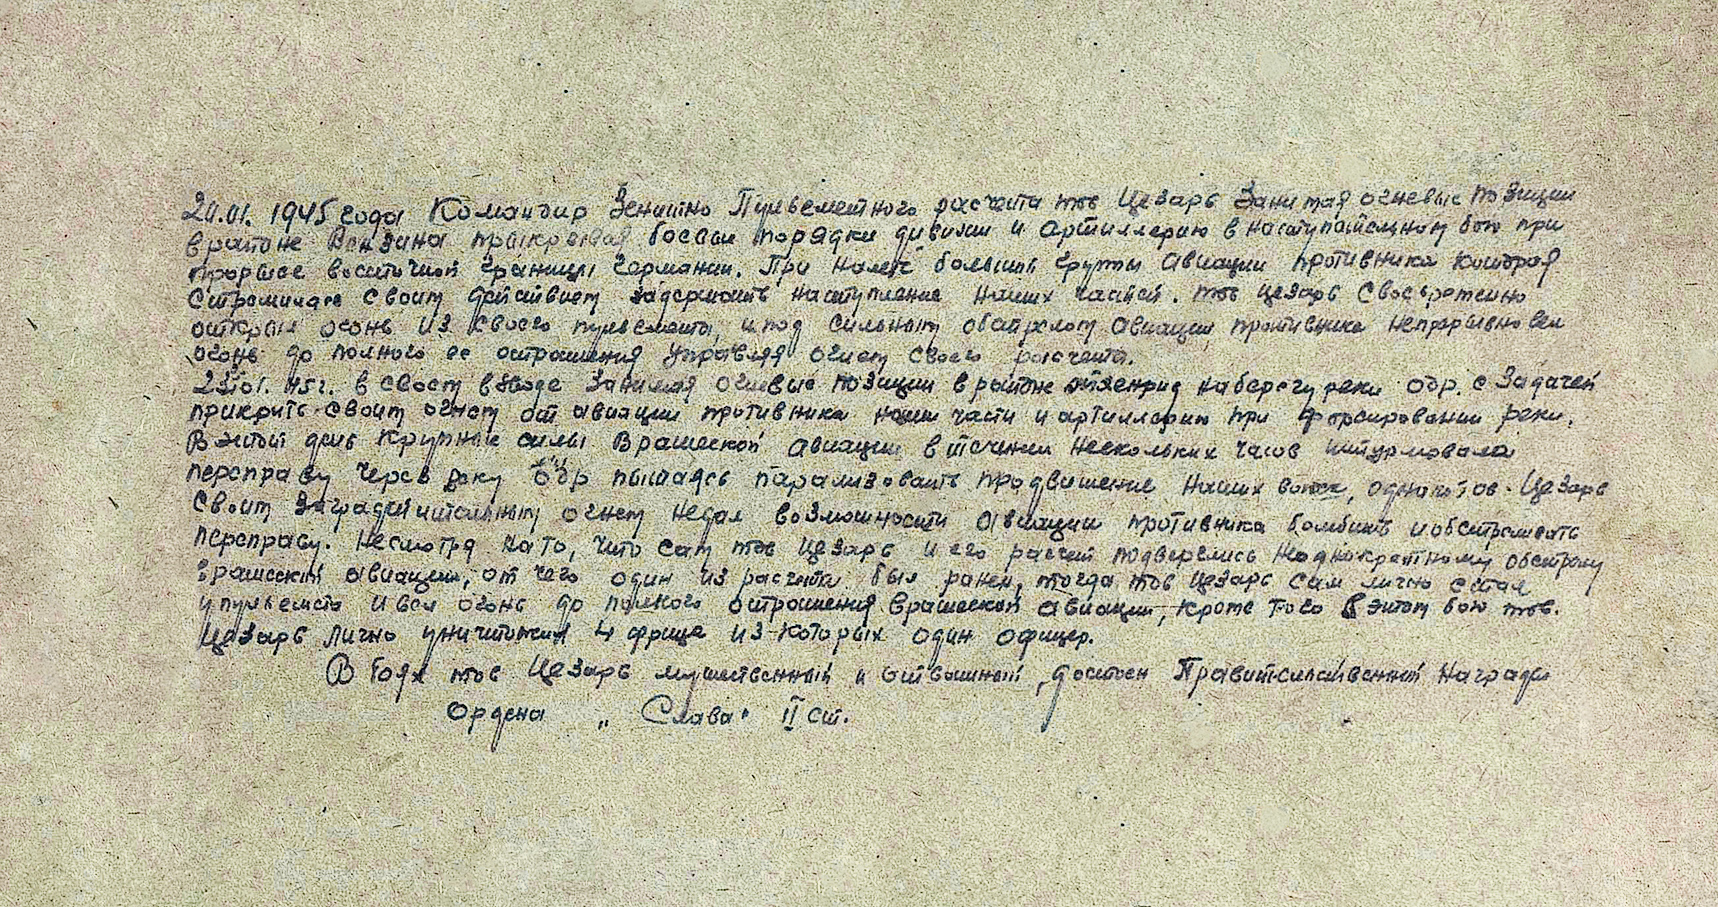 20.01. 1945 года Командир Зенитно Пулеметного расчета тов Цезарь Занимая огневые позиции
в районе прикрывая боевы порядки дивизии и артиллерию в наступательном бою при
прорыве восточной границы Германии. При налете большой группы авиации противника которая
стремилась своим действием задержать наступление наших частей. тов Цезарь Своевременно
открыл огонь из своего пулемета и под сильным обстрелом авиации противника непрерывно вел
огонь до полного ее отражения управляя огнем своего расчета.
23.01. 45г. в своем взводе занимая огневые позиции в районе на берегу реки Одр. с задачей
прикрить своим огнем от авиации противника наши части и артиллерию при форсировании реки.
В этот день крупные силы Вражеской авиации в течении нескольких часов штурмовала
переправу через реку Одр пытаясь парализовать продвижение наших войск, однако тов. Цезарь
Своим заградительным огнем недал возможности авиации противника бомбить и обстреливать
переправу. Несмотря на то, что сам тов Цезарь и его расчет подверглись неоднократному обстрелу
вражеской авиации, от чего один из расчета был ранен, тогда тов Цезарь сам лично встал
у пулемета и вел огонь до полного отражения вражеской авиации, кроме того в этом бою тов.
Цезарь лично уничтожил 4 фрица из которых один офицер.
В боях тов Цезарь мужественный и отважный, достоен Правительственной Награды
Ордена „Слава" II ст.